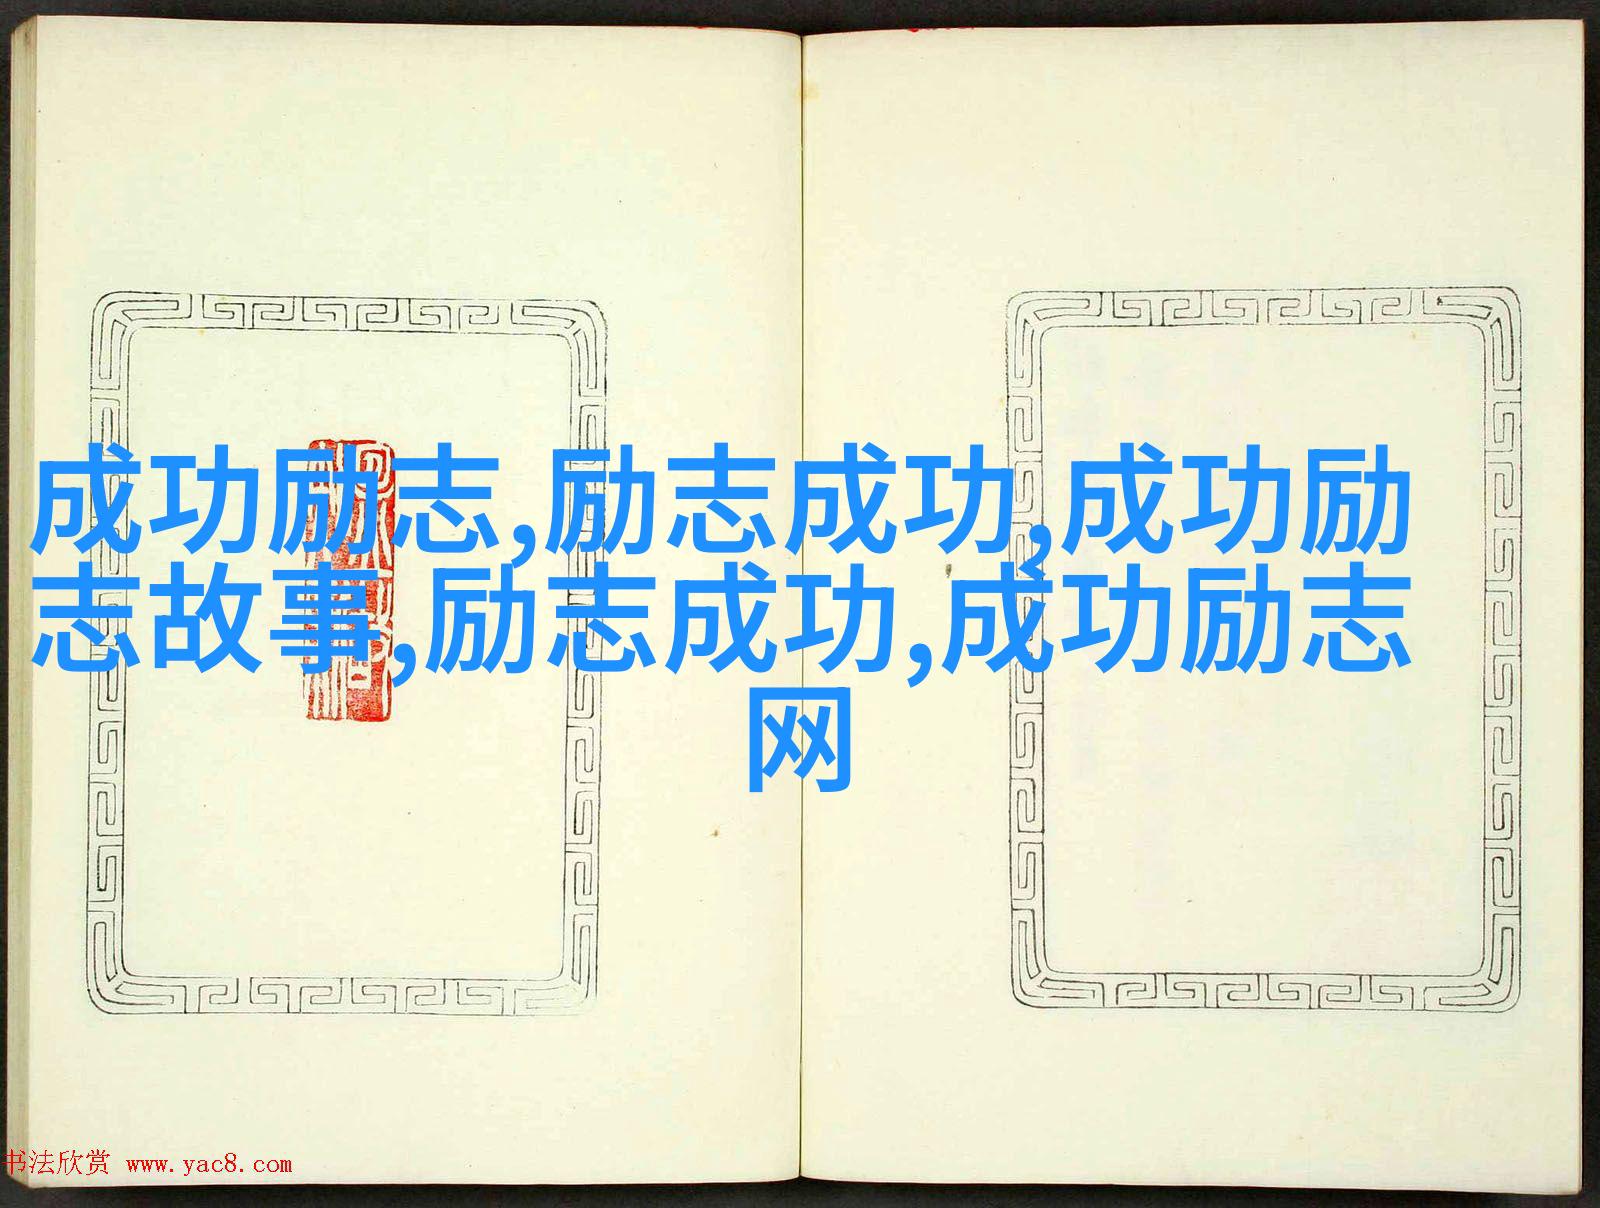 成功励志,励志成功,成功励
志故事,励志成功,成功励志
网
书法欣赏 www.yac8.com